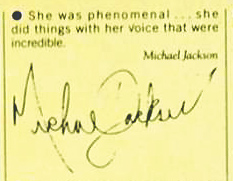 ● She was phenomenal ... she
did things with her voice that were
incredible.
Michael Jackson
Michael Jackson